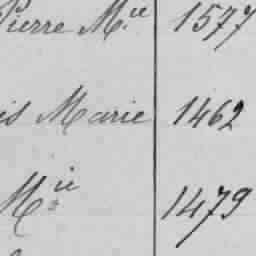 Pierre M.ie 1577
is Marie 1462
M.ie 1479